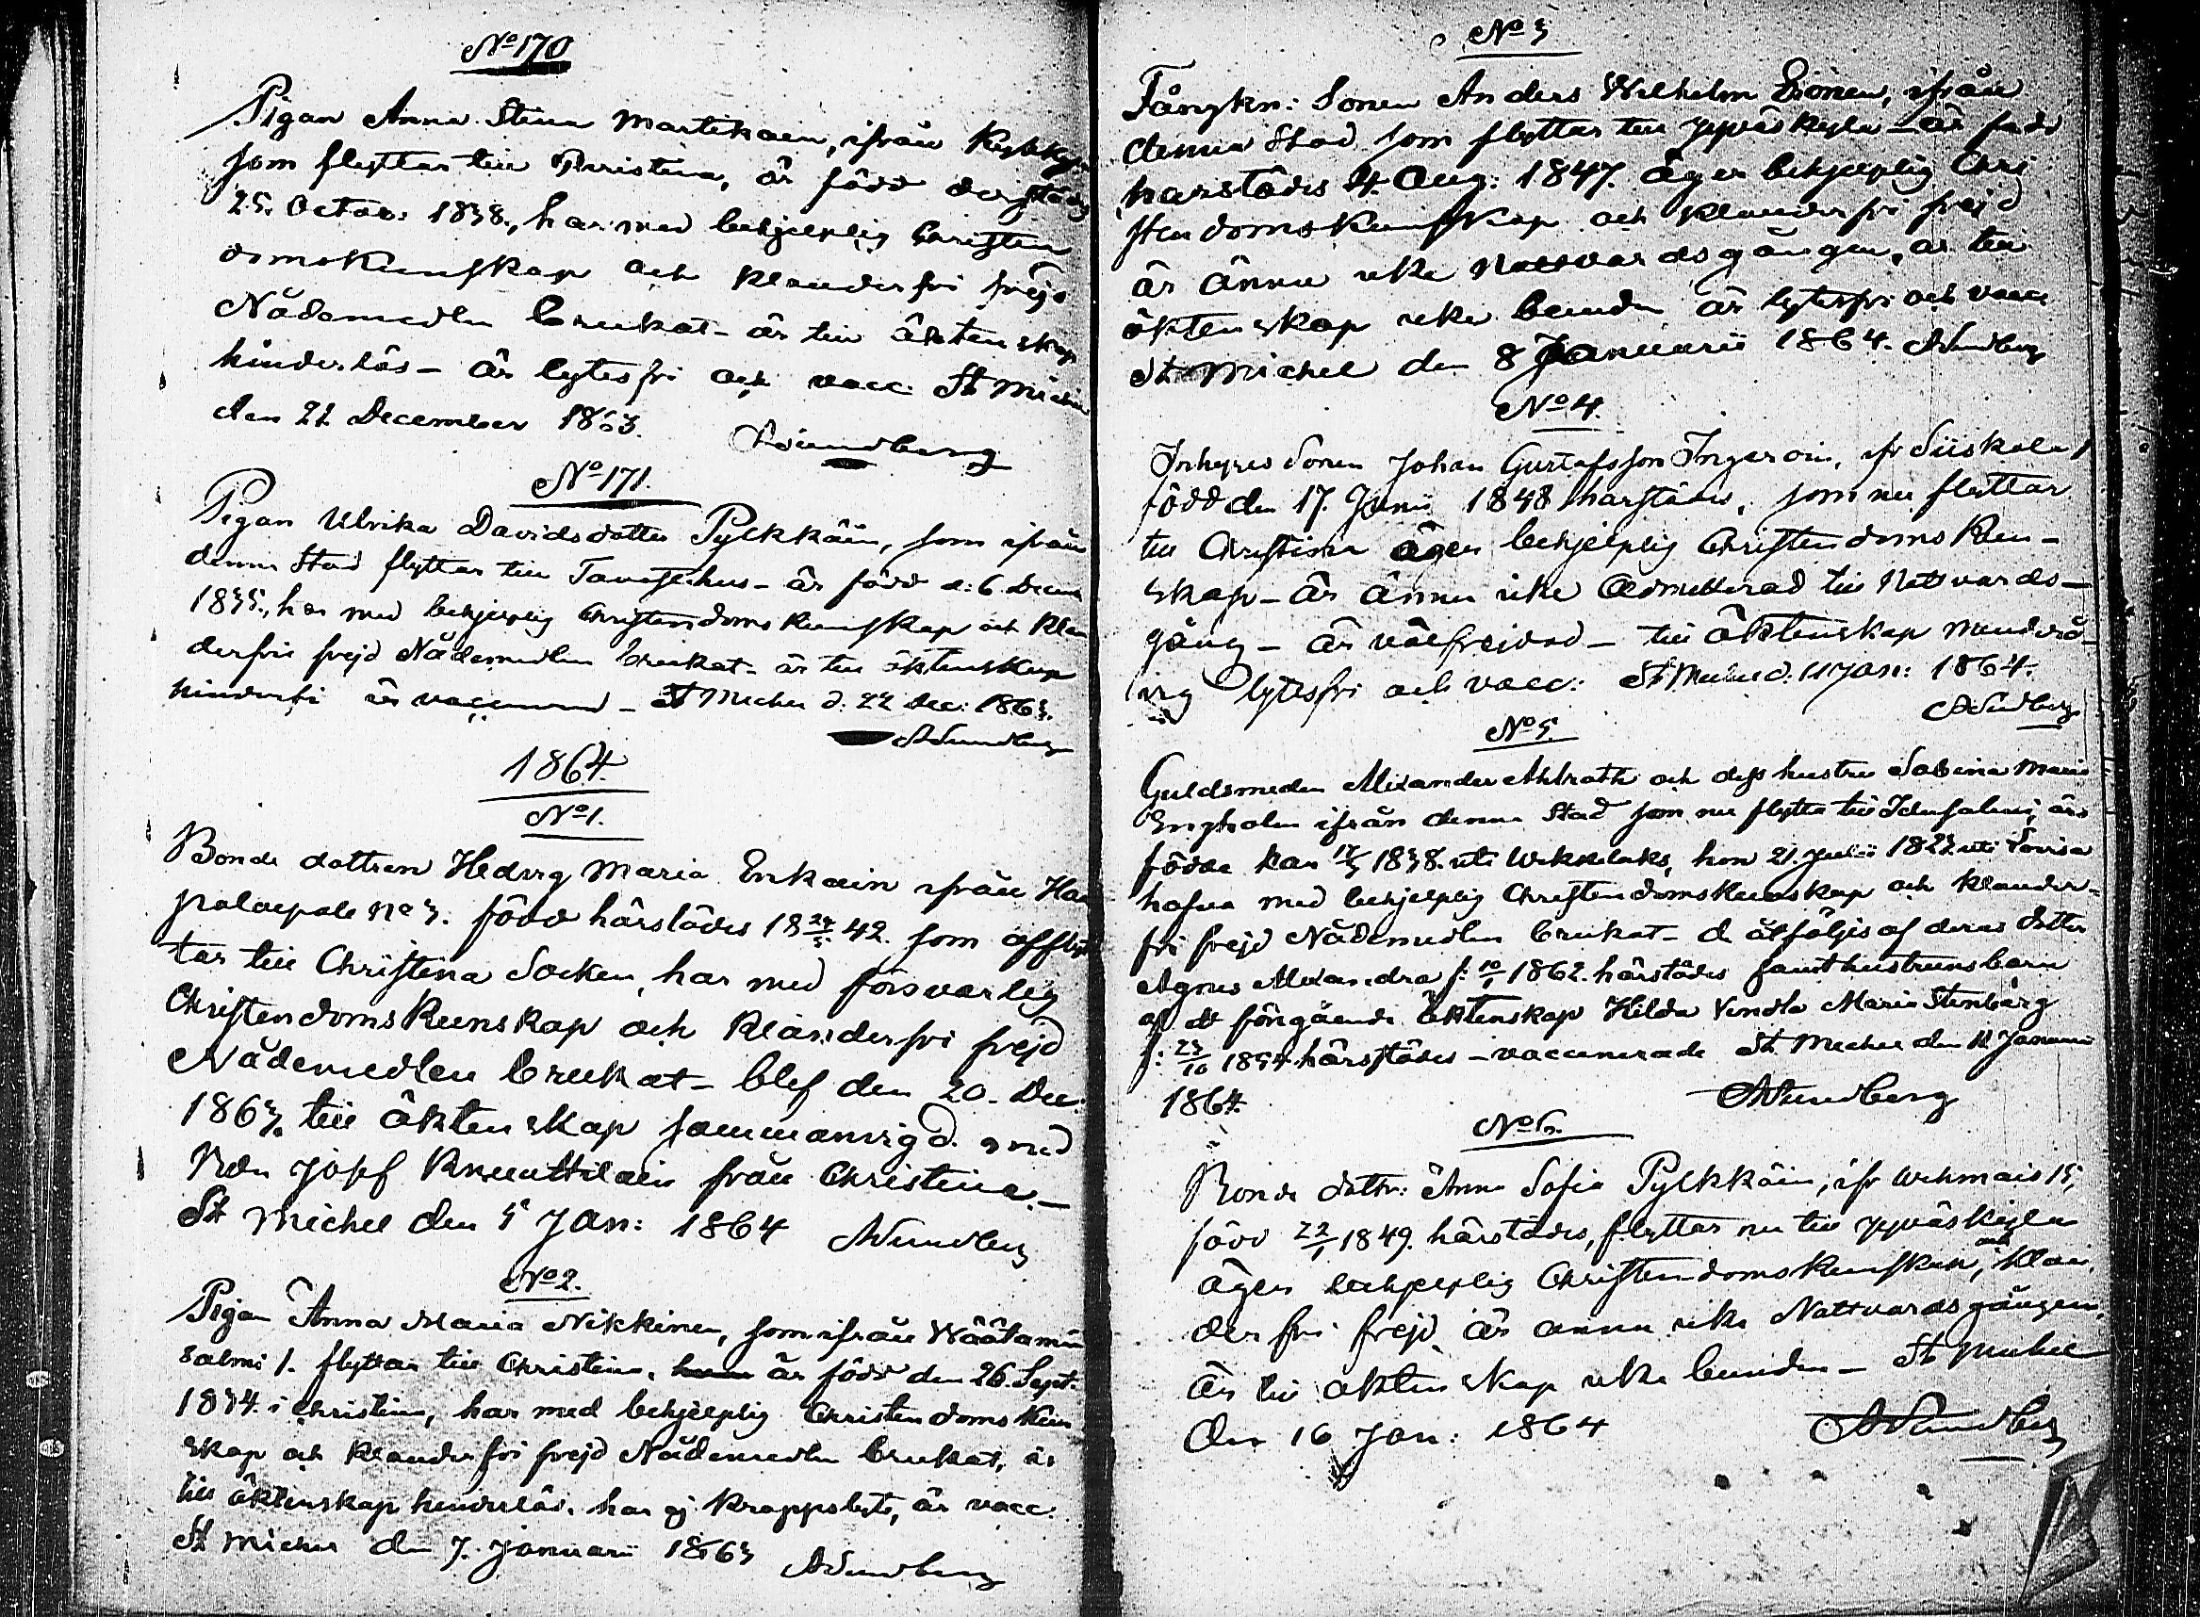 No 170
Pigan Anna Stina Martikain, ifrån
som flyttar till Christina, är född derstädes
25. Octob: 1838., har med behjelplig Christen
domskunskap och klanderfri frejd
Nådemedlen brukat - är till äktenskap
hinderlös - är lytesfri och vacc: St Michel
den 22 December 1863. ASundberg
No 171.
Pigan Ulrika Davidsdotter Pylkkäin, som ifrån
denna Stad flyttar till Tavastehus - är född d: 6 Decemb
1835., har med behjelplig Christendoms kunskap och klan
derfri frejd Nådemedlen brukat - är till äktenskap
hinderfri är vaccinerad - St Michel d. 22 Dec: 1863.
ASundberg
1864.
No 1.
Bonde dottren Hedvig Maria Erikäin ifrån
No 3. född härstädes 18 42. som afflyt
tar till Christina Socken, har med försvarlig
Christendoms kunskap och klanderfri frejd
Nådemedlen brukat - blef den 20. Dec:
1863. till äktenskap sammanvigd med
Josef Knuuttilain från Christina. -
St Michel den 5 Jan: 1864 ASundberg
No 2.
Pigan Anna Maria Nikkinen, som ifrån Wäätämin
salmi 1. flyttar till Christina. är född den 26. Sept:
1834. i Christina, har med behjelplig Christendoms kun
skap och klanderfri frejd Nådemedlen brukat, är
till äktenskap hinderlös. har ej kroppslyte, är vacc.
St Michel den 7. Januarii 1863 ASundberg
No 3
Fångkn: Sonen Anders Wilhelm ifrån
denna Stad som flyttar till Jyväskylä - är född
härstädes 4. Aug: 1847. äger behjelplig Chri
stendomskunskap och klanderfri frejd
är ännu icke Nattvardsgången, är till
äktenskap icke bunden är lytesfri och vacc
St Michel den 8 Januarii 1864. ASundberg
No 4.
Inhyses Sonen Johan Gustafsson Ingeroin, ifr Siiskola 1
född den 17. Junii 1848 härstädes, som nu flyttar
till Christina äger behjelplig Christendoms kun-
skap - är ännu icke admitterad till Nattvards-
gång - är välfrejdad - till äktenskap mindrå-
rig lytesfri och vacc: St Michel d: 11 Jan: 1864.
ASundberg
No 5.
Guldsmeden Alexander Ahlroth och dess hustru Sabina Maria
Engholm ifrån denna Stad som nu flytta till Idensalmi, äro
födde han 1838. uti hon 21. Julii 1822 uti Lovisa
hafva med behjelplig Christendomskunskap och klander-
fri frejd Nådemedlen brukat - de åtföljes af deras dotter
Agnes Alexandra f: 10/1 1862. härstädes samt hustruns barn
af ett föregående äktenskap Hilda Vendla Maria Stenbärg
f: 23/10 1854 härstädes - vaccinerade St Michel den 12 Januarii
1864. ASundberg
No 6.
Bonde dottr: Anna Sofia Pylkkäin, ifr Wehmais 15,
född 22/1 1849. härstädes, flyttar nu till Jyväskylä
äger behjelplig Christendomskunskap, och klan
derfri frejd, är ännu icke Nattvardsgången.
är till äktenskap icke bunden - St Michel
den 16 Jan: 1864 ASundberg